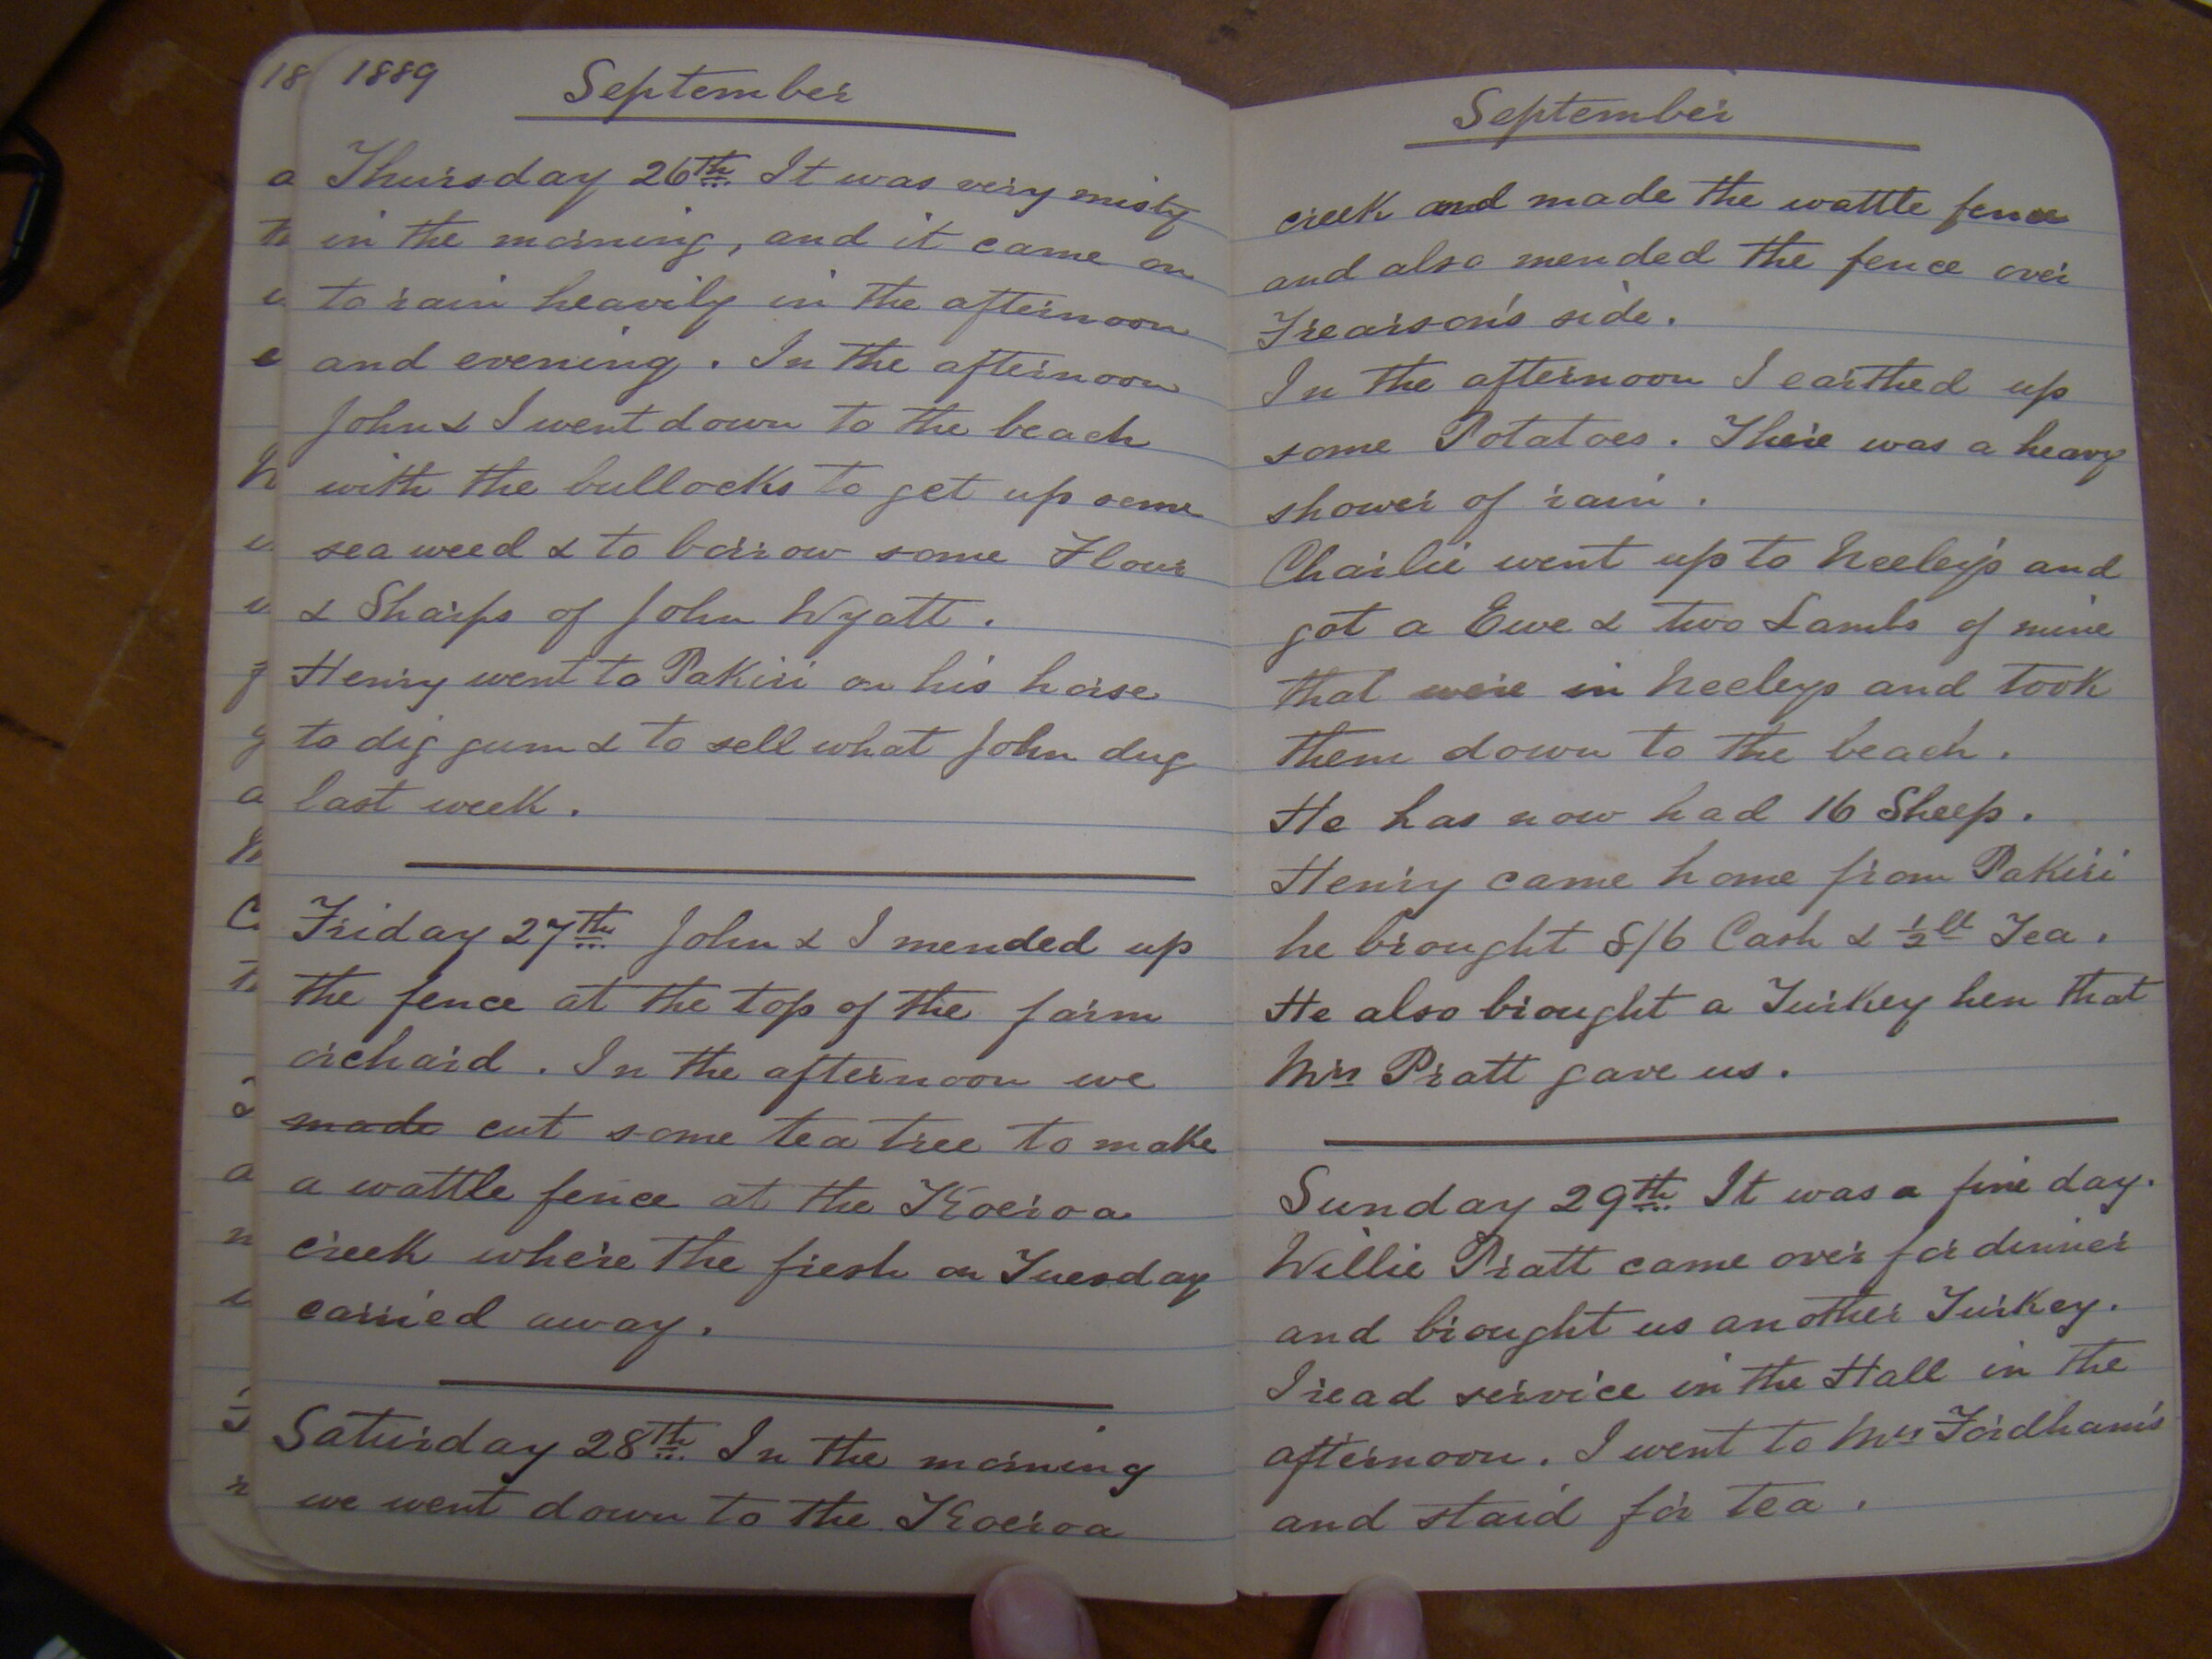 1889
September
Thursday 26th It was very misty
in the morning, and it came on
to rain heavily in the afternoon
and evening. In the afternoon
John & I went down to the beach
with the bullocks to get up some
sea weed & to borrow some Flour
& Sharps of John Wyatt.
Henry went to Pakiri on his horse
to dig gum & to sell what John dug
last week.
Friday 27th John & I mended up
the fence at the top of the farm
orchard. In the afternoon we
made cut some tea tree to make
a wattle fence at the Koeroa
creek where the fresh on Tuesday
carried away.
Saturday 28th In the morning
we went down to the Koeroa
September
creek and made the wattle fence
and also mended the fence over
Frearson's side.
In the afternoon I earthed up
some Potatoes. There was a heavy
shower of rain.
Charlie went up to Neeley's and
got a Ewe & two Lambs of mine
that were in Neeleys and took
them down to the beach.
He has now had 16 Sheep.
Henry came home from Pakiri
he brought 8/6 Cash & ½ lb Tea.
He also brought a Turkey hen that
Mrs Pratt gave us.
Sunday 29th It was a fine day.
Willie Pratt came over for dinner
and brought us another Turkey.
I read service in the Hall in the
afternoon. I went to Mrs Fordham's
and staid for tea.